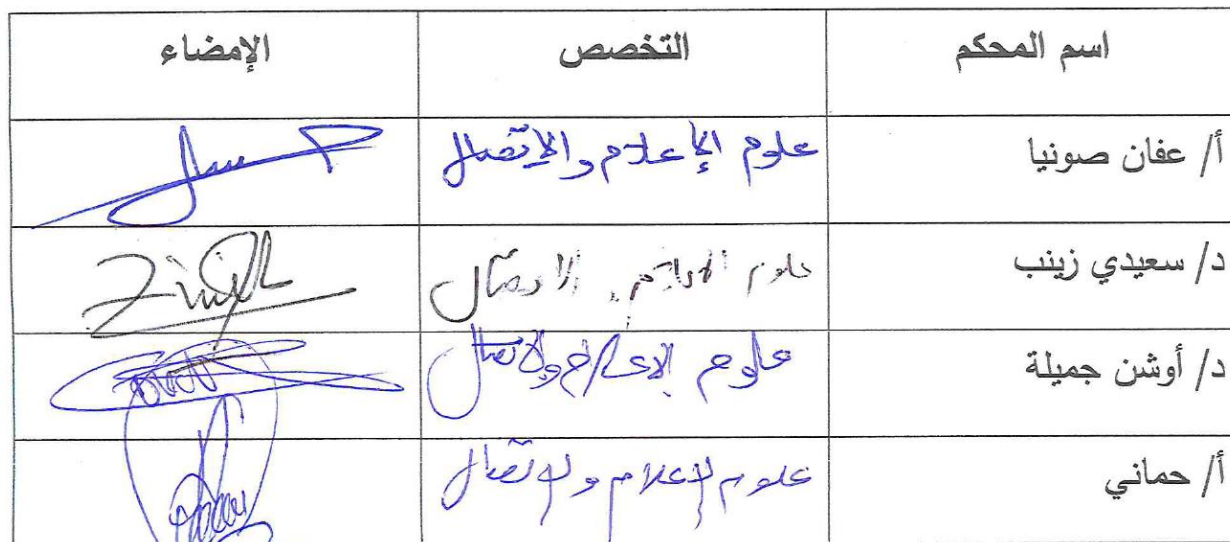 اسم المحكم التخصص الإمضاء
أ/ عفان صونيا علوم الإعلام والاتصال
د/ سعيدي زينب علوم الاعلام والاتصال
د/ أوشن جميلة علوم الاعلام والاتصال
أ/ حماني علوم الإعلام والاتصال